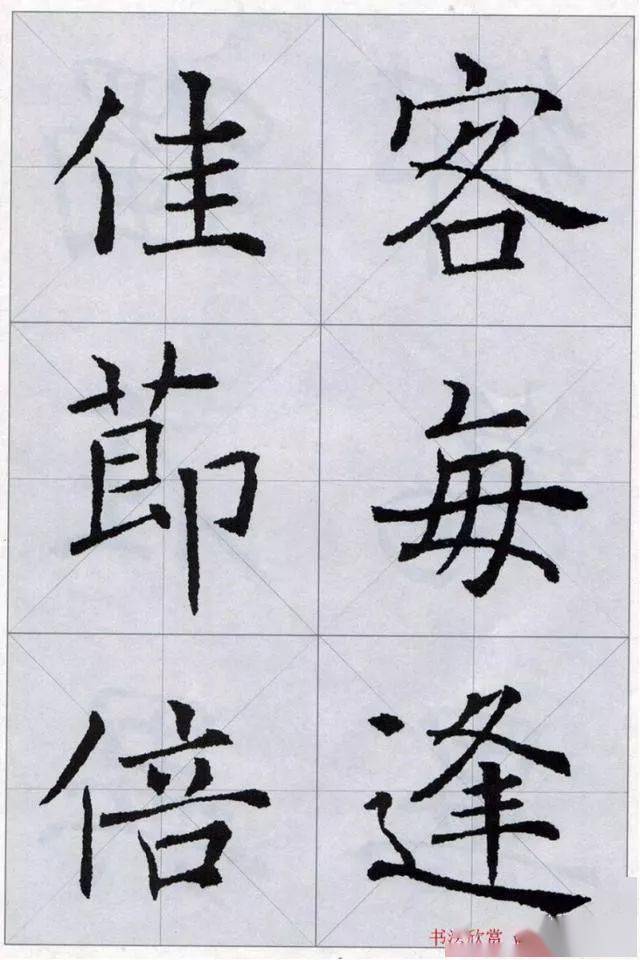 客每逢
佳節倍
书法欣赏